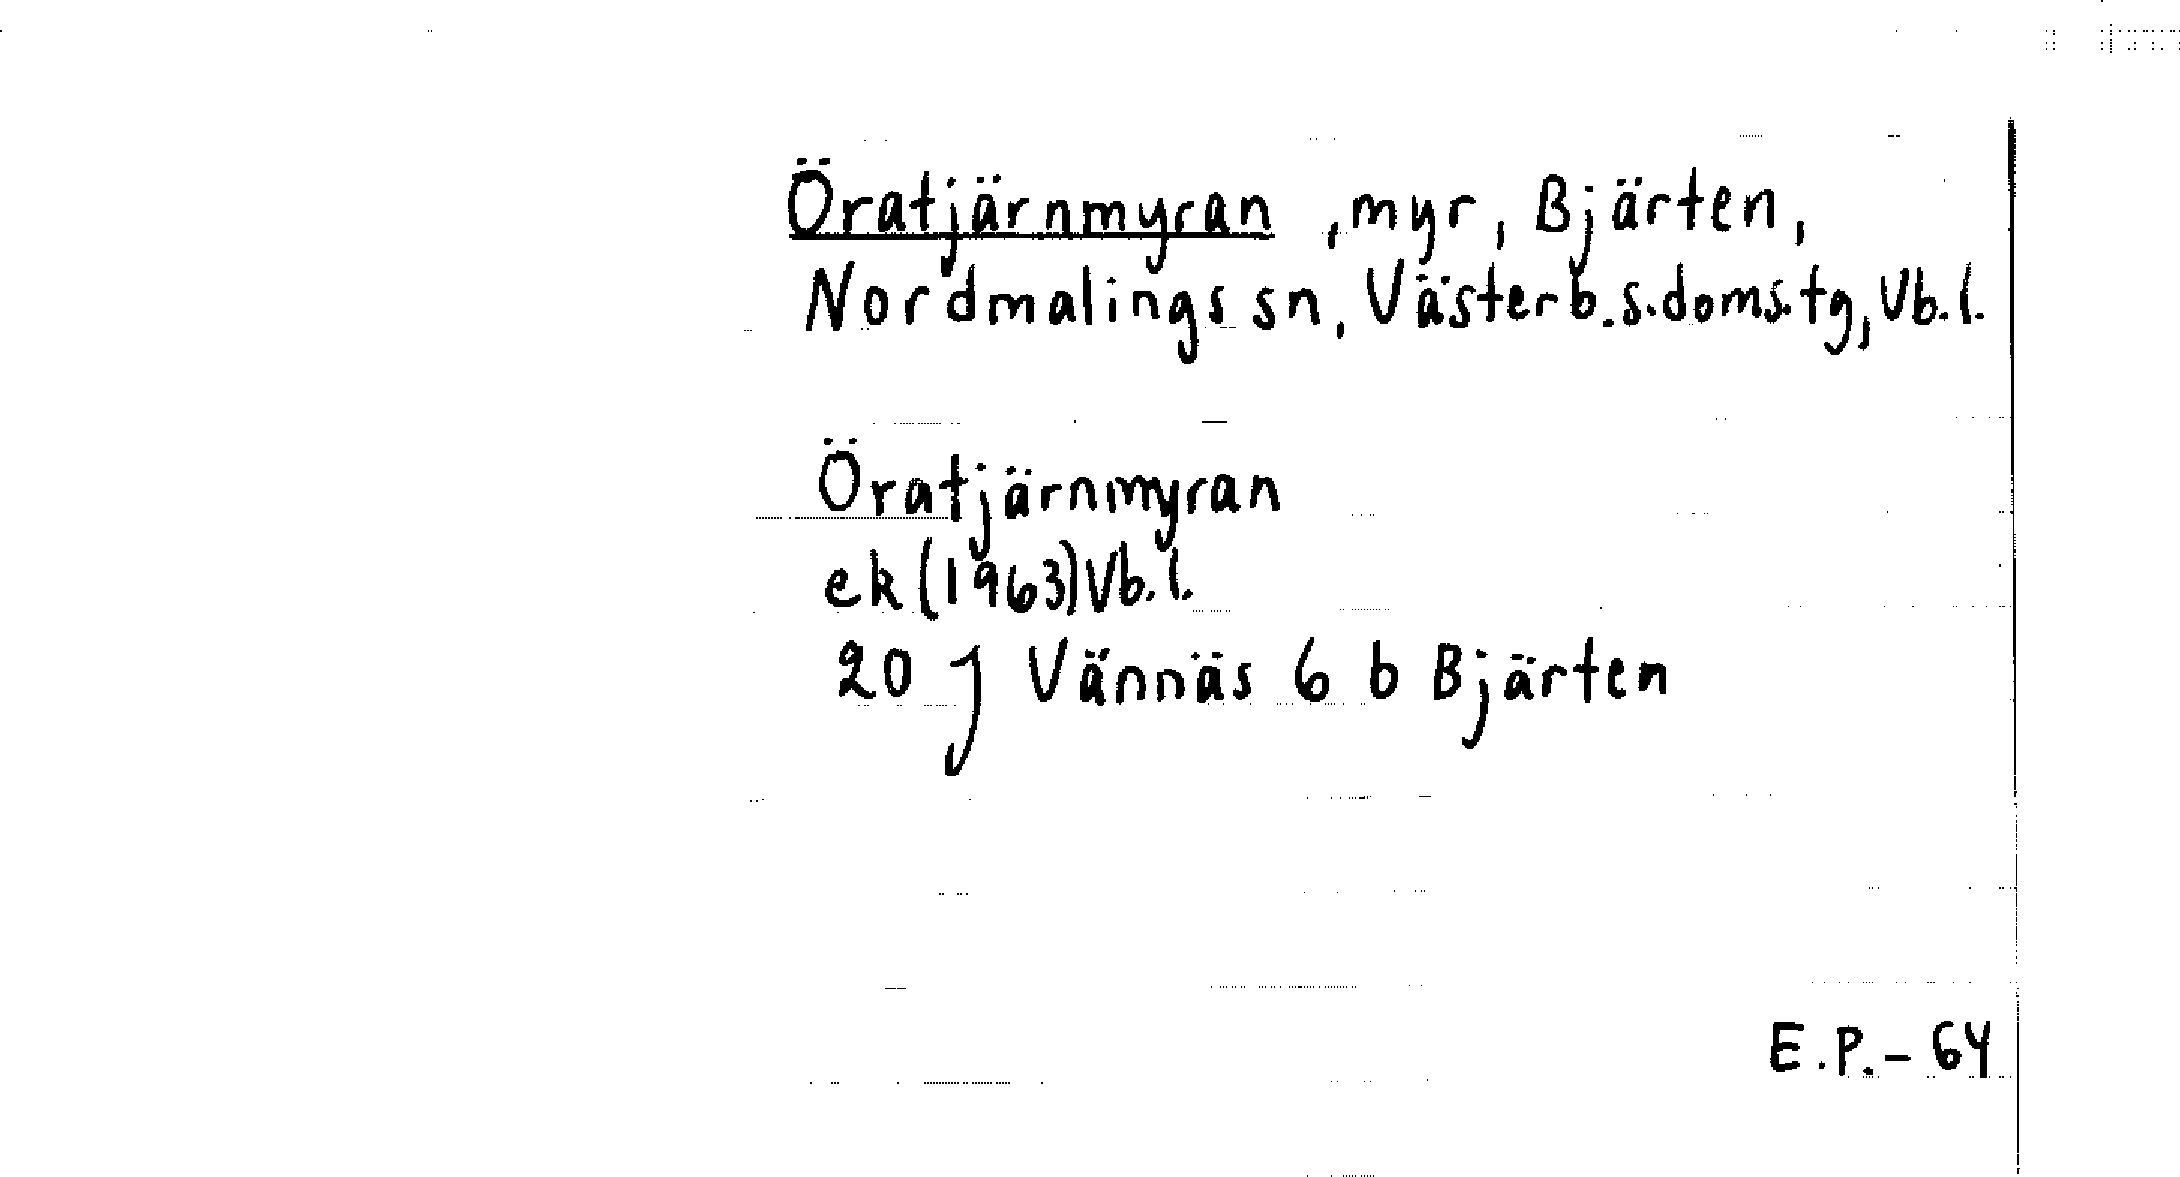 Öratjärnmyran, myr, Bjärten,
Nordmalings sn, Västerb.s.doms.tg, Vb.l.
Öratjärnmyran
ek (1963) Vb.l.
20 J Vännäs 6 b Bjärten
E.P.- 64